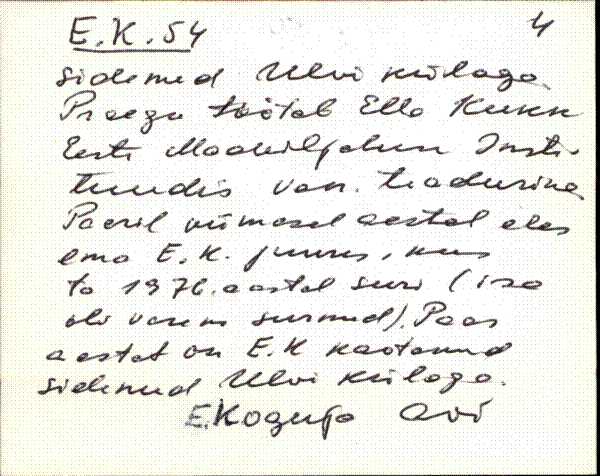 E.K. 54 4
sidemed Ulvi külaga.
Praegu töötab Ella Kukk
Eesti Maaviljeluse Insti-
tuudis van. teadurina.
Paaril viimasel aastal elas
ema E.K. juures, kus
ta 1976. aastal suri (isa
oli varem surnud). Paar
aastat on E.K kaotanud
sidemed Ulvi külaga.
E. Koguja